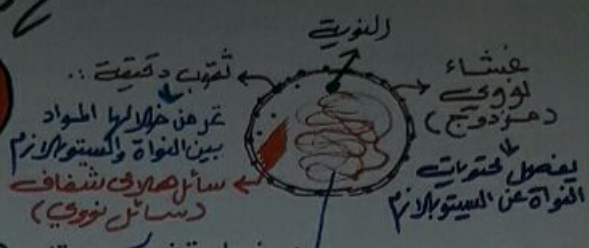 النوية
غشاء
نووي
(مزدوج)
يفصل محتويات
النواة عن السيتوبلازم
ثقوب دقيقة :.
تمر من خلالها المواد
بين النواة والسيتوبلازم
سائل هلامي شفاف
(سائل نووي)